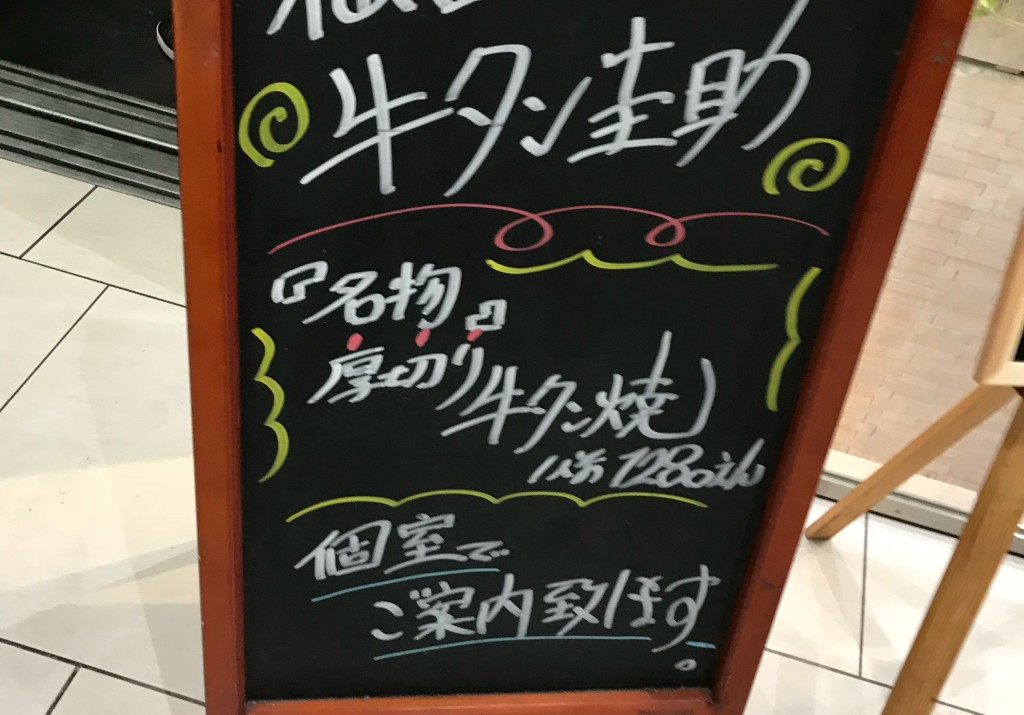 牛タン圭助
『名物』
厚切り牛タン焼
1人前1280えん
個室で
ご案内致します。